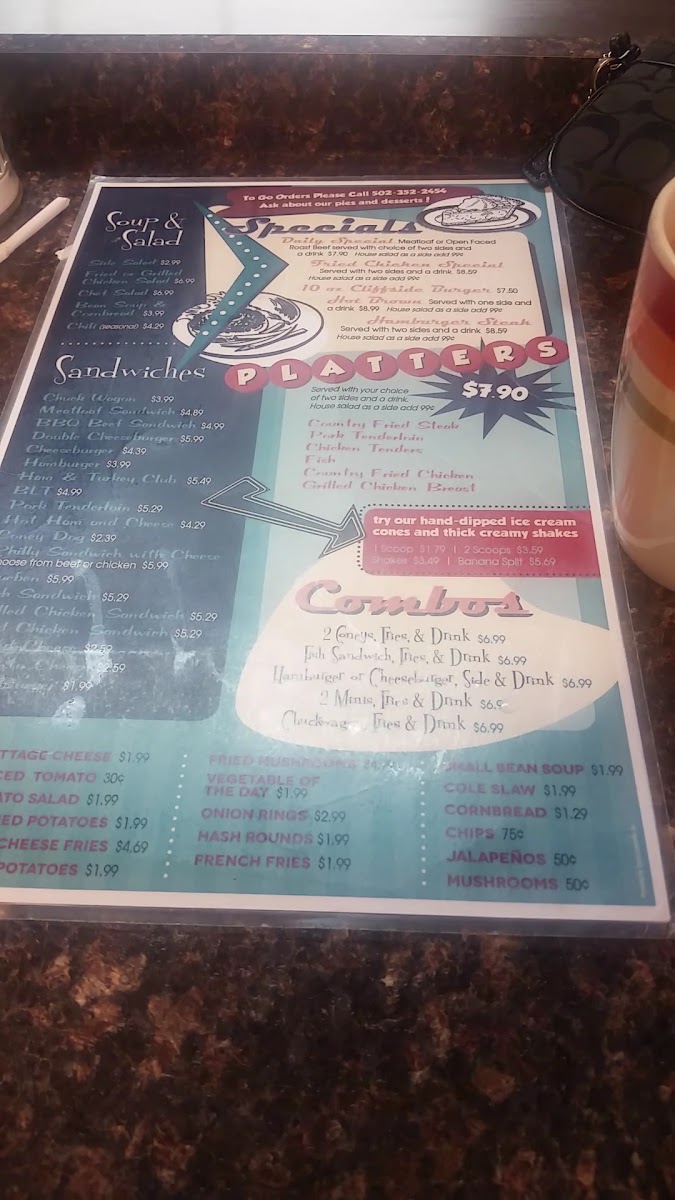 To Go Orders Please Call 502-352-2454
Ask about our pies and desserts!
Soup &
Salad
Side Salad $2.99
Fried or Grilled
Chicken Salad $6.99
Chef Salad $6.99
Bean Soup &
Cornbread $3.99
Chili (seasonal) $4.29
Specials
Daily Special Meatloaf or Open Faced
Roast Beef served with choice of two sides and
a drink $7.90 House salad as a side add 99¢
Fried Chicken Special
Served with two sides and a drink $8.59
House salad as a side add 99¢
10 oz Cliffside Burger $7.50
Hot Brown Served with one side and
a drink $8.99 House salad as a side add 99¢
Hamburger Steak
Served with two sides and a drink $8.59
House salad as a side add 99¢
Sandwiches
Chuck Wagon $3.99
Meatloaf Sandwich $4.89
BBQ Beef Sandwich $4.99
Double Cheeseburger $5.99
Cheeseburger $4.39
Hamburger $3.99
Ham & Turkey Club $5.49
BLT $4.99
Pork Tenderloin $5.29
Hot Ham and Cheese $4.29
Coney Dog $2.39
Philly Sandwich with Cheese
oose from beef or chicken $5.99
uben $5.99
h Sandwich $5.29
lled Chicken Sandwich $5.29
Chicken Sandwich $5.29
$2.59
$2.59
$1.99
PLATTERS
$7.90
Served with your choice
of two sides and a drink.
House salad as a side add 99¢
Country Fried Steak
Pork Tenderloin
Chicken Tenders
Fish
Country Fried Chicken
Grilled Chicken Breast
try our hand-dipped ice cream
cones and thick creamy shakes
1 Scoop $1.79 | 2 Scoops $3.59
Shakes $3.49 | Banana Split $5.69
Combos
2 Coneys, Fries, & Drink $6.99
Fish Sandwich, Fries, & Drink $6.99
Hamburger or Cheeseburger, Side & Drink $6.99
2 Minis, Fries & Drink $6.9
Chuckwagon, Fries & Drink $6.99
TTAGE CHEESE $1.99
CED TOMATO 30¢
ATO SALAD $1.99
ED POTATOES $1.99
CHEESE FRIES $4.69
POTATOES $1.99
FRIED MUSHROOMS
VEGETABLE OF
THE DAY $1.99
ONION RINGS $2.99
HASH ROUNDS $1.99
FRENCH FRIES $1.99
SMALL BEAN SOUP $1.99
COLE SLAW $1.99
CORNBREAD $1.29
CHIPS 75¢
JALAPEÑOS 50¢
MUSHROOMS 50¢